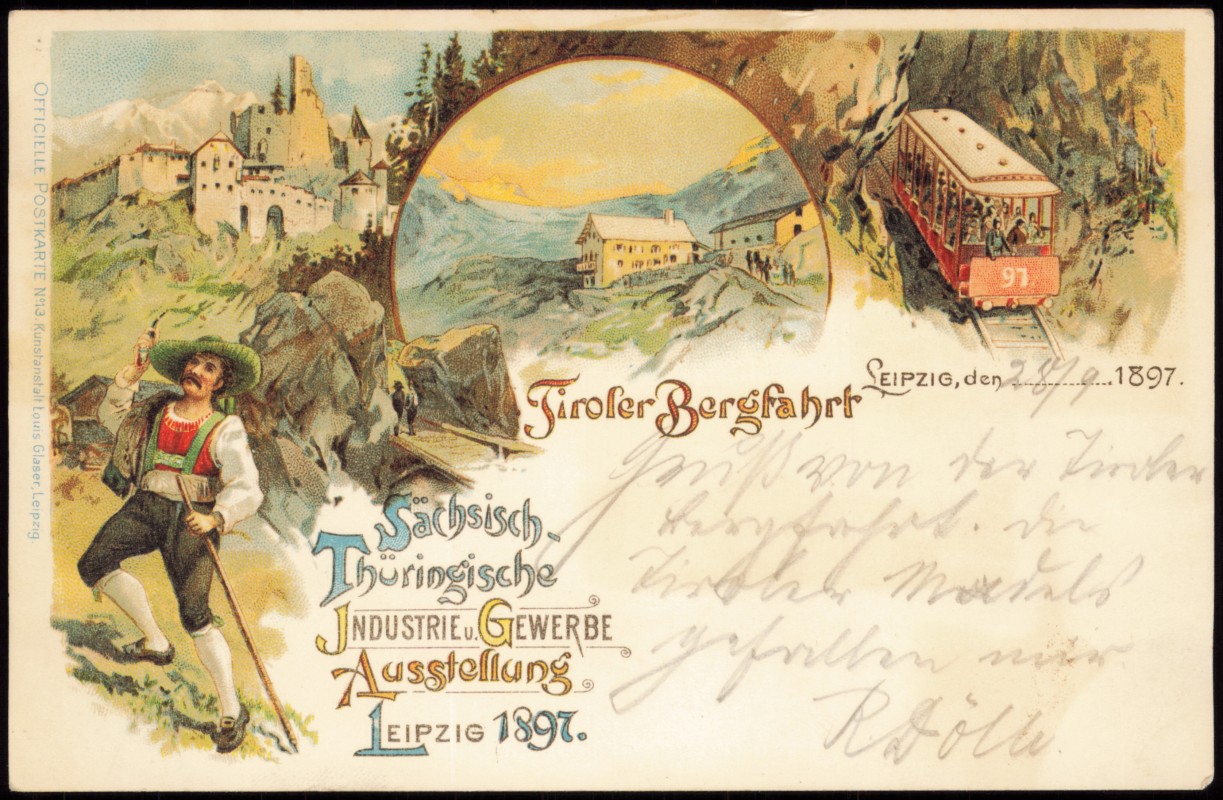 OFFICIELLE POSTKARTE No 13. Kunstanstalt Louis Glaser, Leipzig.
97
Tiroler Bergfahrt
LEIPZIG, den 28/9 1897.
Gruß von der Tiroler
Bergfahrt. die
Tiroler Madels
gefallen mir
R Dölle.
Sächsisch-
Thüringische
INDUSTRIE u. GEWERBE
Ausstellung
LEIPZIG 1897.